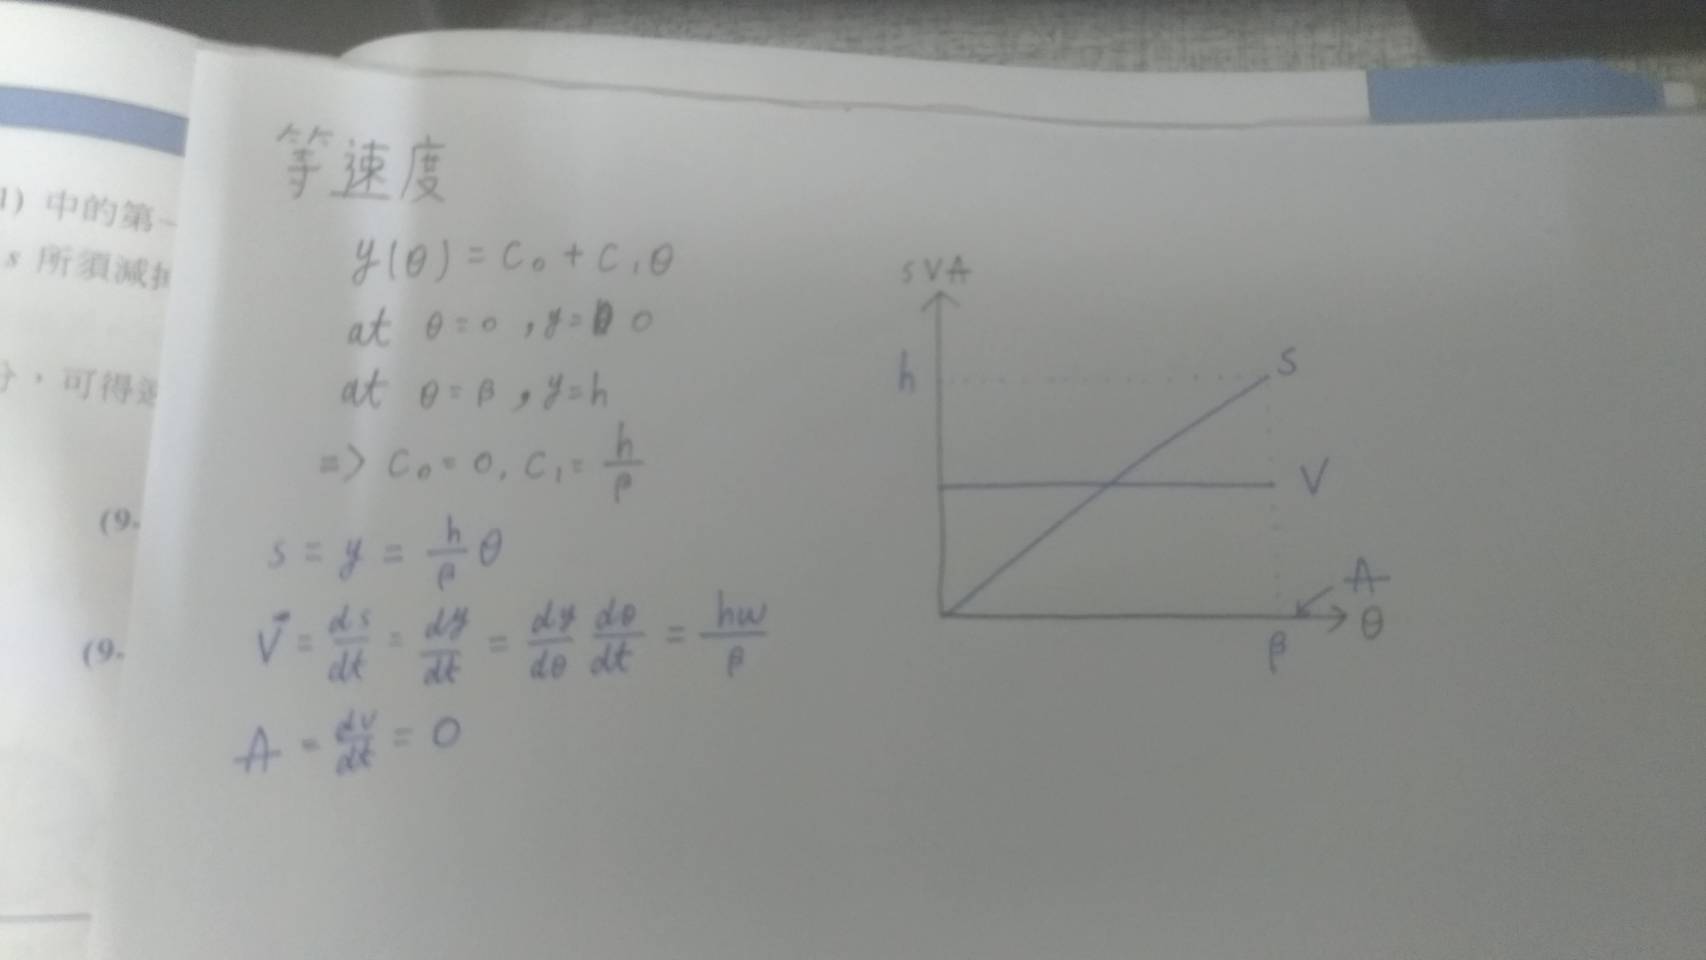 1) 中的第一
s 所須減
分，可得速
(9.
(9.
等速度
y(θ) = C₀ + C₁θ
at θ=0 , y= 0
at θ=β , y=h
=> C₀=0, C₁= h/β
s = y = h/β θ
V⃗ = ds/dt = dy/dt = dy/dθ dθ/dt = hω/β
A = dv/dt = 0
S V A
h
S
V
A
θ
β